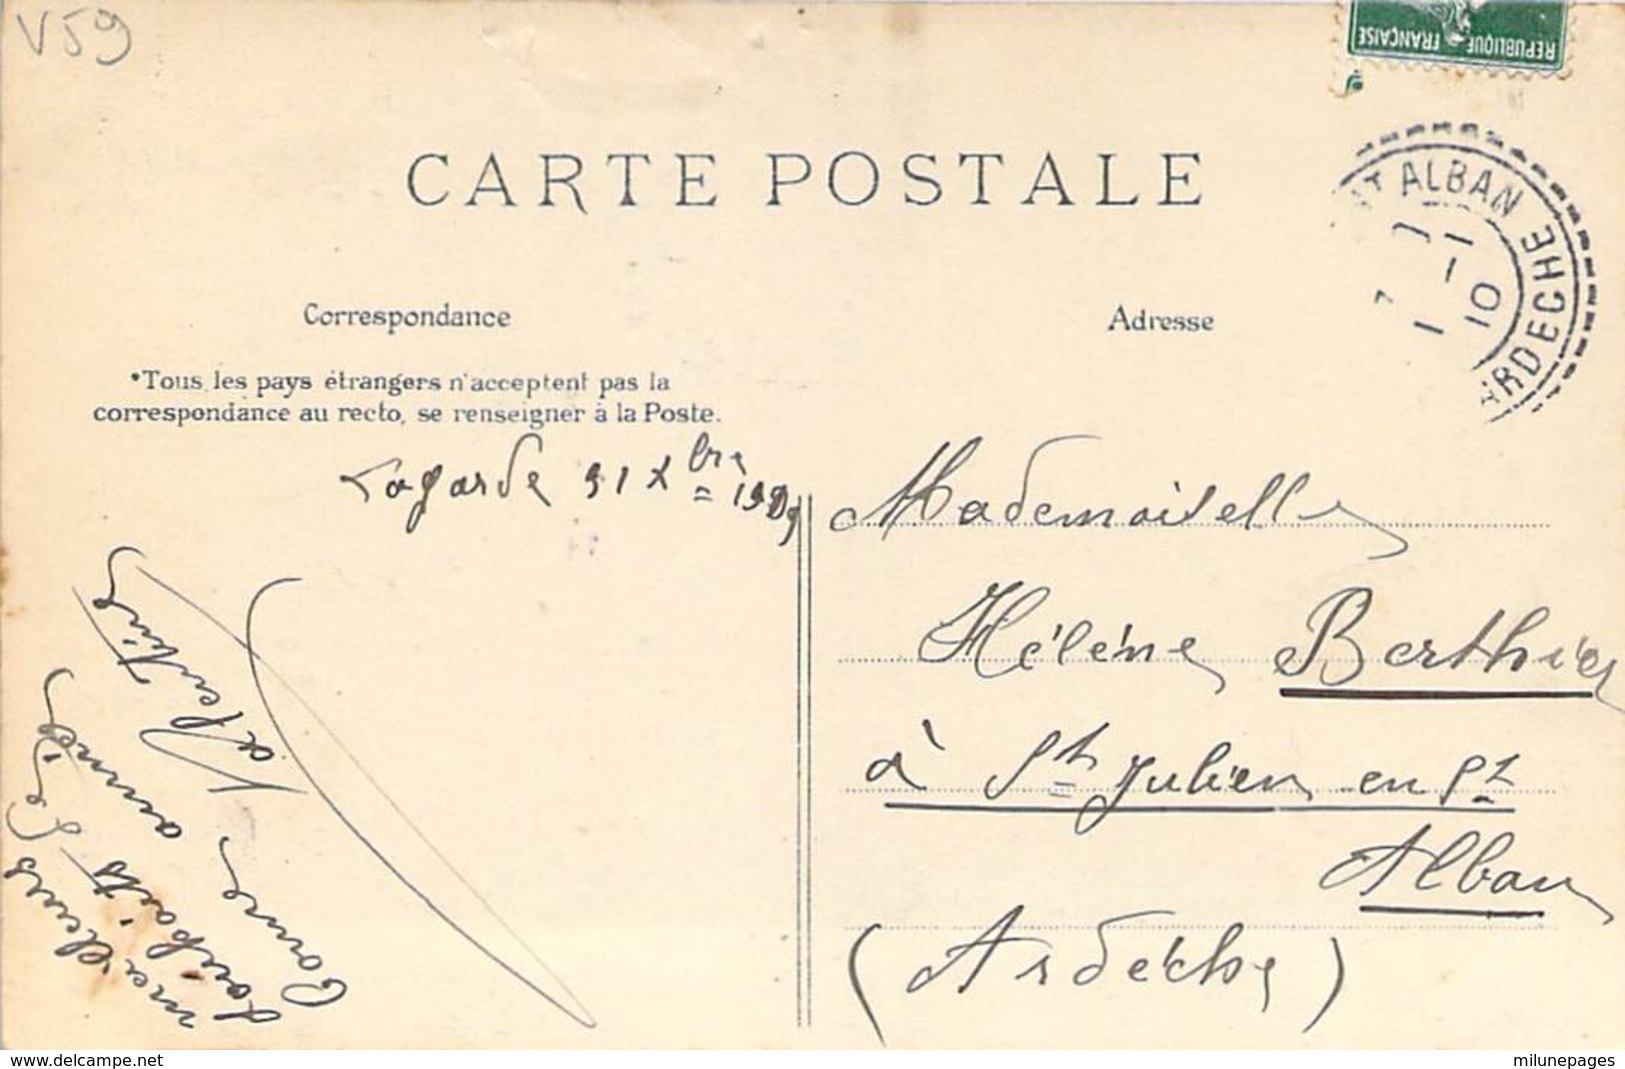 V59
REPUBLIQUE FRANÇAISE
CARTE POSTALE
ST ALBAN
ARDECHE
1 - 1
10
Correspondance
Adresse
•Tous les pays étrangers n'acceptent pas la
correspondance au recto, se renseigner à la Poste.
Lagarde 31 Xbre 1909
meilleurs
souhaits de
bonne année
Mademoiselle
Hélène Berthier
à St Julien en St
Alban
(Ardèche)
www.delcampe.net
milunepages